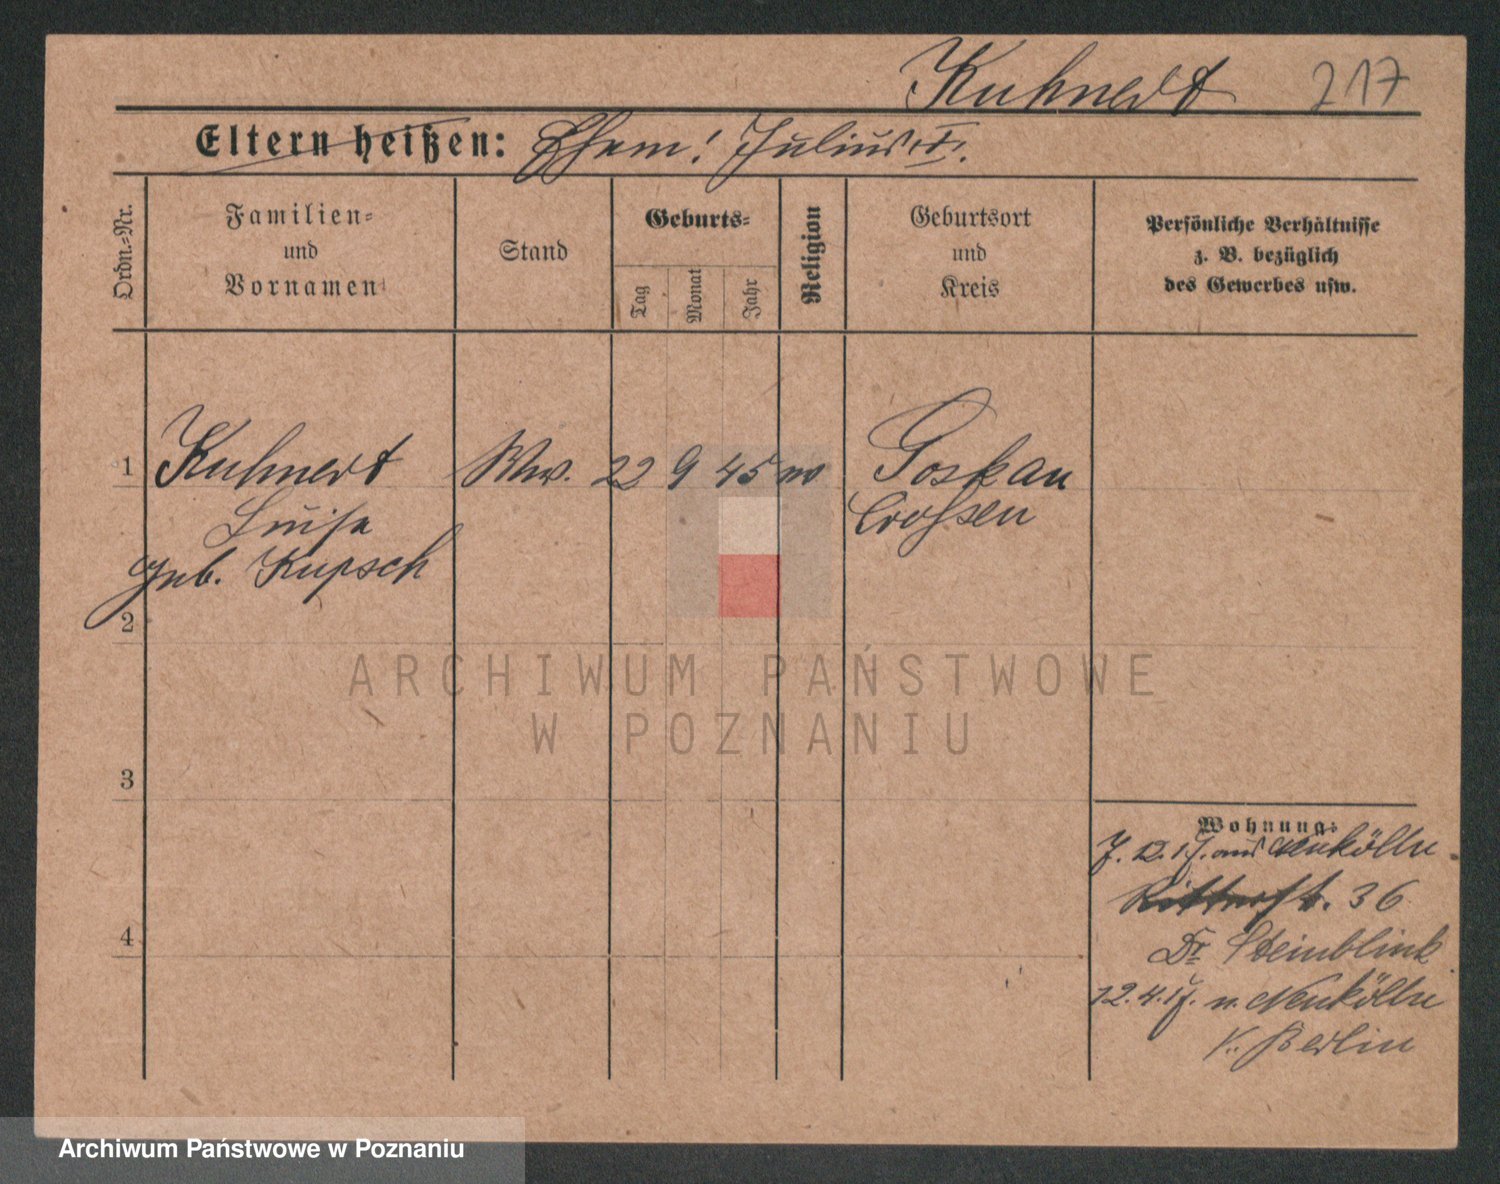 Kuhnert 217
Eltern heißen: Ehem: Julius †.
Ordn.-Nr.
Familien-
und
Vornamen
Stand
Geburts-
Tag
Monat
Jahr
Religion
Geburtsort
und
Kreis
Persönliche Verhältnisse
z. B. bezüglich
des Gewerbes usw.
1 Kuhnert Ww. 22 9 45 Goskau
Luise Crossen
geb. Kupsch
2
3
4
Wohnung:
aus Neukölln
Ritterstr. 36
Dr. Steinblink
12.4.17. n. Neukölln
Berlin
ARCHIWUM PAŃSTWOWE
W POZNANIU
Archiwum Państwowe w Poznaniu